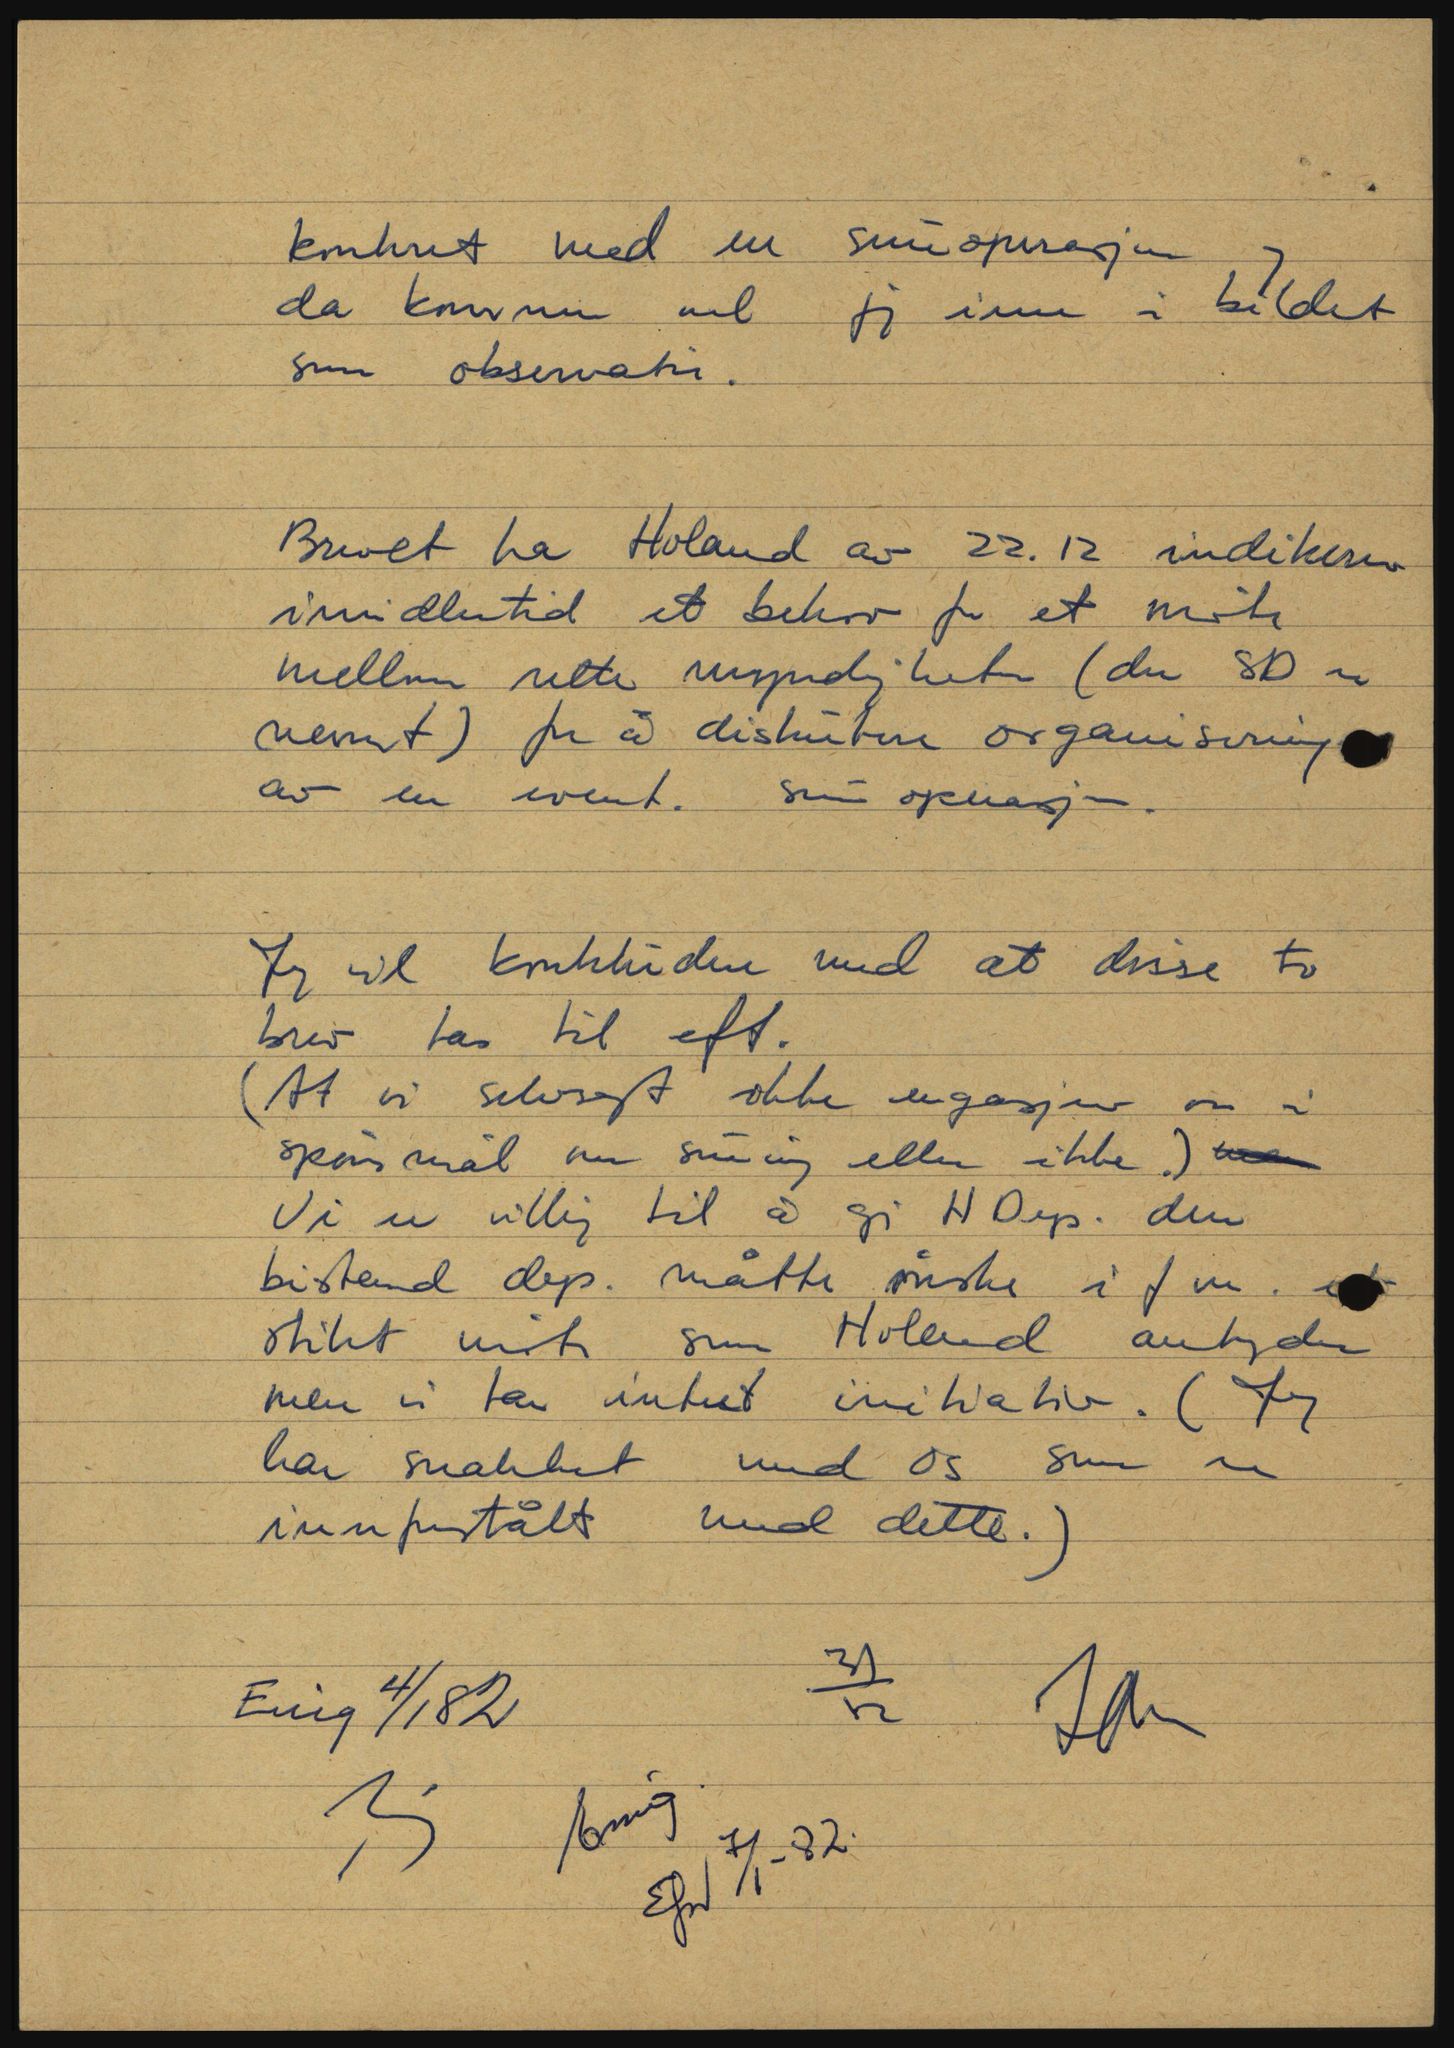 konkret med en snuoperasjon,
da kommer vel vi inn i bildet
som observatør.
Brevet fra Holand av 22.12 indikerer
imidlertid et behov for et møte
mellom rette myndigheter (der SD er
nevnt) for å diskutere organisering
av en event. snuoperasjon.
Jeg vil konkludere med at disse to
brev tas til eft.
(At vi selvsagt ikke engasjerer oss i
spørsmål om snuing eller ikke.)
Vi er villig til å gi H Dep. den
bistand dep. måtte ønske i fm. et
slikt møte som Holand antyder
men vi tar intet initiativ. (Jeg
har snakket med OS som er
innforstått med dette.)
Enig 4/1 82
31/12
Enig.
7/1-82.